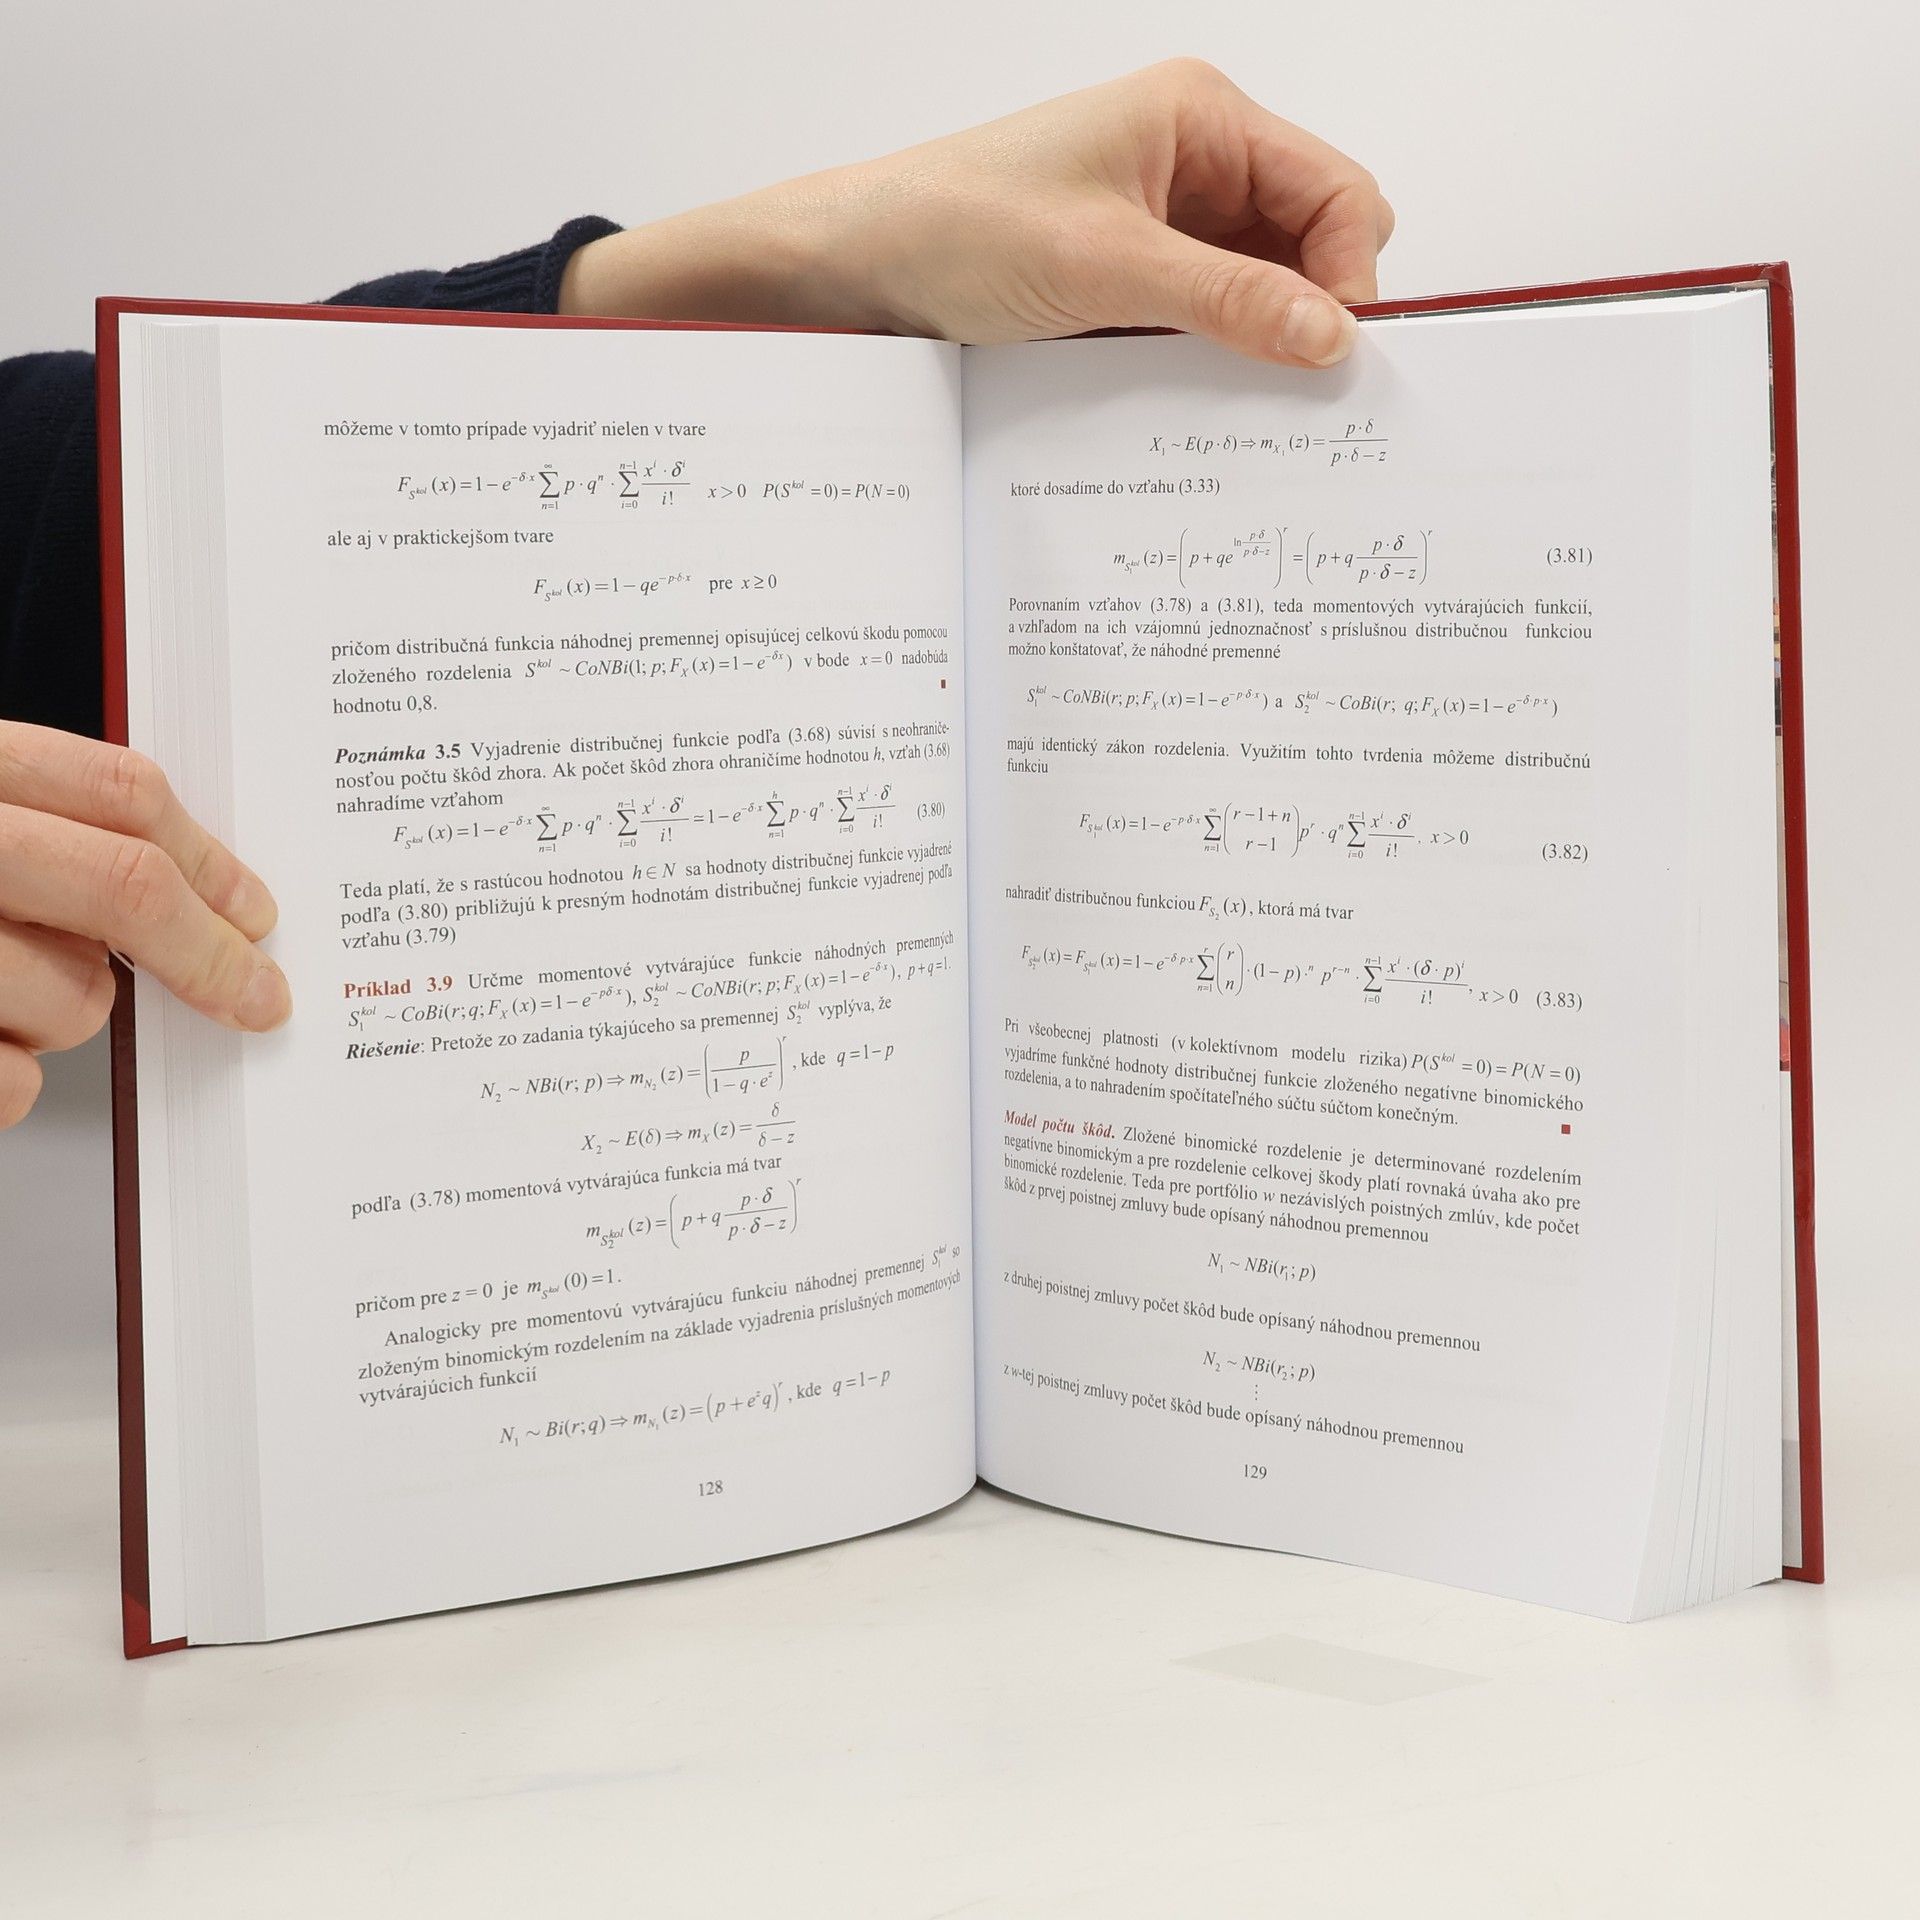 môžeme v tomto prípade vyjadriť nielen v tvare
F_{S^{kol}}(x)=1−e^{−δ·x} \sum_{n=1}^{∞} p·q^n · \sum_{i=0}^{n−1} \frac{x^i·δ^i}{i!} x>0 P(S^{kol}=0)=P(N=0)
ale aj v praktickejšom tvare
F_{S^{kol}}(x)=1−qe^{−p·δ·x} pre x≥0
pričom distribučná funkcia náhodnej premennej opisujúcej celkovú škodu pomocou
zloženého rozdelenia S^{kol} ~ CoNBi(1; p; F_X(x)=1−e^{−δx}) v bode x=0 nadobúda
hodnotu 0,8.
Poznámka 3.5 Vyjadrenie distribučnej funkcie podľa (3.68) súvisí s neohraniče-
nosťou počtu škôd zhora. Ak počet škôd zhora ohraničíme hodnotou h, vzťah (3.68)
nahradíme vzťahom
F_{S^{kol}}(x)=1−e^{−δ·x} \sum_{n=1}^{∞} p·q^n · \sum_{i=0}^{n−1} \frac{x^i·δ^i}{i!} ≃ 1−e^{−δ·x} \sum_{n=1}^{h} p·q^n · \sum_{i=0}^{n−1} \frac{x^i·δ^i}{i!} (3.80)
Teda platí, že s rastúcou hodnotou h∈N sa hodnoty distribučnej funkcie vyjadrené
podľa (3.80) približujú k presným hodnotám distribučnej funkcie vyjadrenej podľa
vzťahu (3.79)
Príklad 3.9 Určme momentové vytvárajúce funkcie náhodných premenných
S_1^{kol} ~ CoBi(r; q; F_X(x)=1−e^{−pδ·x}), S_2^{kol} ~ CoNBi(r; p; F_X(x)=1−e^{−δ·x}), p+q=1.
Riešenie: Pretože zo zadania týkajúceho sa premennej S_2^{kol} vyplýva, že
N_2 ~ NBi(r; p)⇒m_{N_2}(z)=\left(\frac{p}{1−q·e^z}\right)^r, kde q=1−p
X_2 ~ E(δ)⇒m_X(z)=\frac{δ}{δ−z}
podľa (3.78) momentová vytvárajúca funkcia má tvar
m_{S_2^{kol}}(z)=\left(p+q\frac{p·δ}{p·δ−z}\right)^r
pričom pre z = 0 je m_{S^{kol}}(0)=1.
Analogicky pre momentovú vytvárajúcu funkciu náhodnej premennej S_1^{kol} so
zloženým binomickým rozdelením na základe vyjadrenia príslušných momentových
vytvárajúcich funkcií
N_1 ~ Bi(r;q)⇒m_{N_1}(z)=(p+e^z q)^r, kde q=1−p
128
X_1 ~ E(p·δ)⇒m_{X_1}(z)=\frac{p·δ}{p·δ−z}
ktoré dosadíme do vzťahu (3.33)
m_{S_1^{kol}}(z)=\left(p+qe^{ln\frac{p·δ}{p·δ−z}}\right)^r=\left(p+q\frac{p·δ}{p·δ−z}\right)^r (3.81)
Porovnaním vzťahov (3.78) a (3.81), teda momentových vytvárajúcich funkcií,
a vzhľadom na ich vzájomnú jednoznačnosť s príslušnou distribučnou funkciou
možno konštatovať, že náhodné premenné
S_1^{kol} ~ CoNBi(r; p; F_X(x)=1−e^{−p·δ·x}) a S_2^{kol} ~ CoBi(r; q; F_X(x)=1−e^{−δ·p·x})
majú identický zákon rozdelenia. Využitím tohto tvrdenia môžeme distribučnú
funkciu
F_{S_1^{kol}}(x)=1−e^{−p·δ·x} \sum_{n=1}^{∞} \binom{r−1+n}{r−1} p^r·q^n \sum_{i=0}^{n−1} \frac{x^i·δ^i}{i!}, x>0 (3.82)
nahradiť distribučnou funkciou F_{S_2}(x), ktorá má tvar
F_{S_2^{kol}}(x)=F_{S_1^{kol}}(x)=1−e^{−δ·p·x} \sum_{n=1}^{r} \binom{r}{n}·(1−p)^{·n} p^{r−n}· \sum_{i=0}^{n−1} \frac{x^i·(δ·p)^i}{i!}, x>0 (3.83)
Pri všeobecnej platnosti (v kolektívnom modelu rizika) P(S^{kol}=0)=P(N=0)
vyjadríme funkčné hodnoty distribučnej funkcie zloženého negatívne binomického
rozdelenia, a to nahradením spočítateľného súčtu súčtom konečným.
Model počtu škôd. Zložené binomické rozdelenie je determinované rozdelením
negatívne binomickým a pre rozdelenie celkovej škody platí rovnaká úvaha ako pre
binomické rozdelenie. Teda pre portfólio w nezávislých poistných zmlúv, kde počet
škôd z prvej poistnej zmluvy bude opísaný náhodnou premennou
N_1 ~ NBi(r_1; p)
z druhej poistnej zmluvy počet škôd bude opísaný náhodnou premennou
N_2 ~ NBi(r_2; p)
⋮
z w-tej poistnej zmluvy počet škôd bude opísaný náhodnou premennou
129